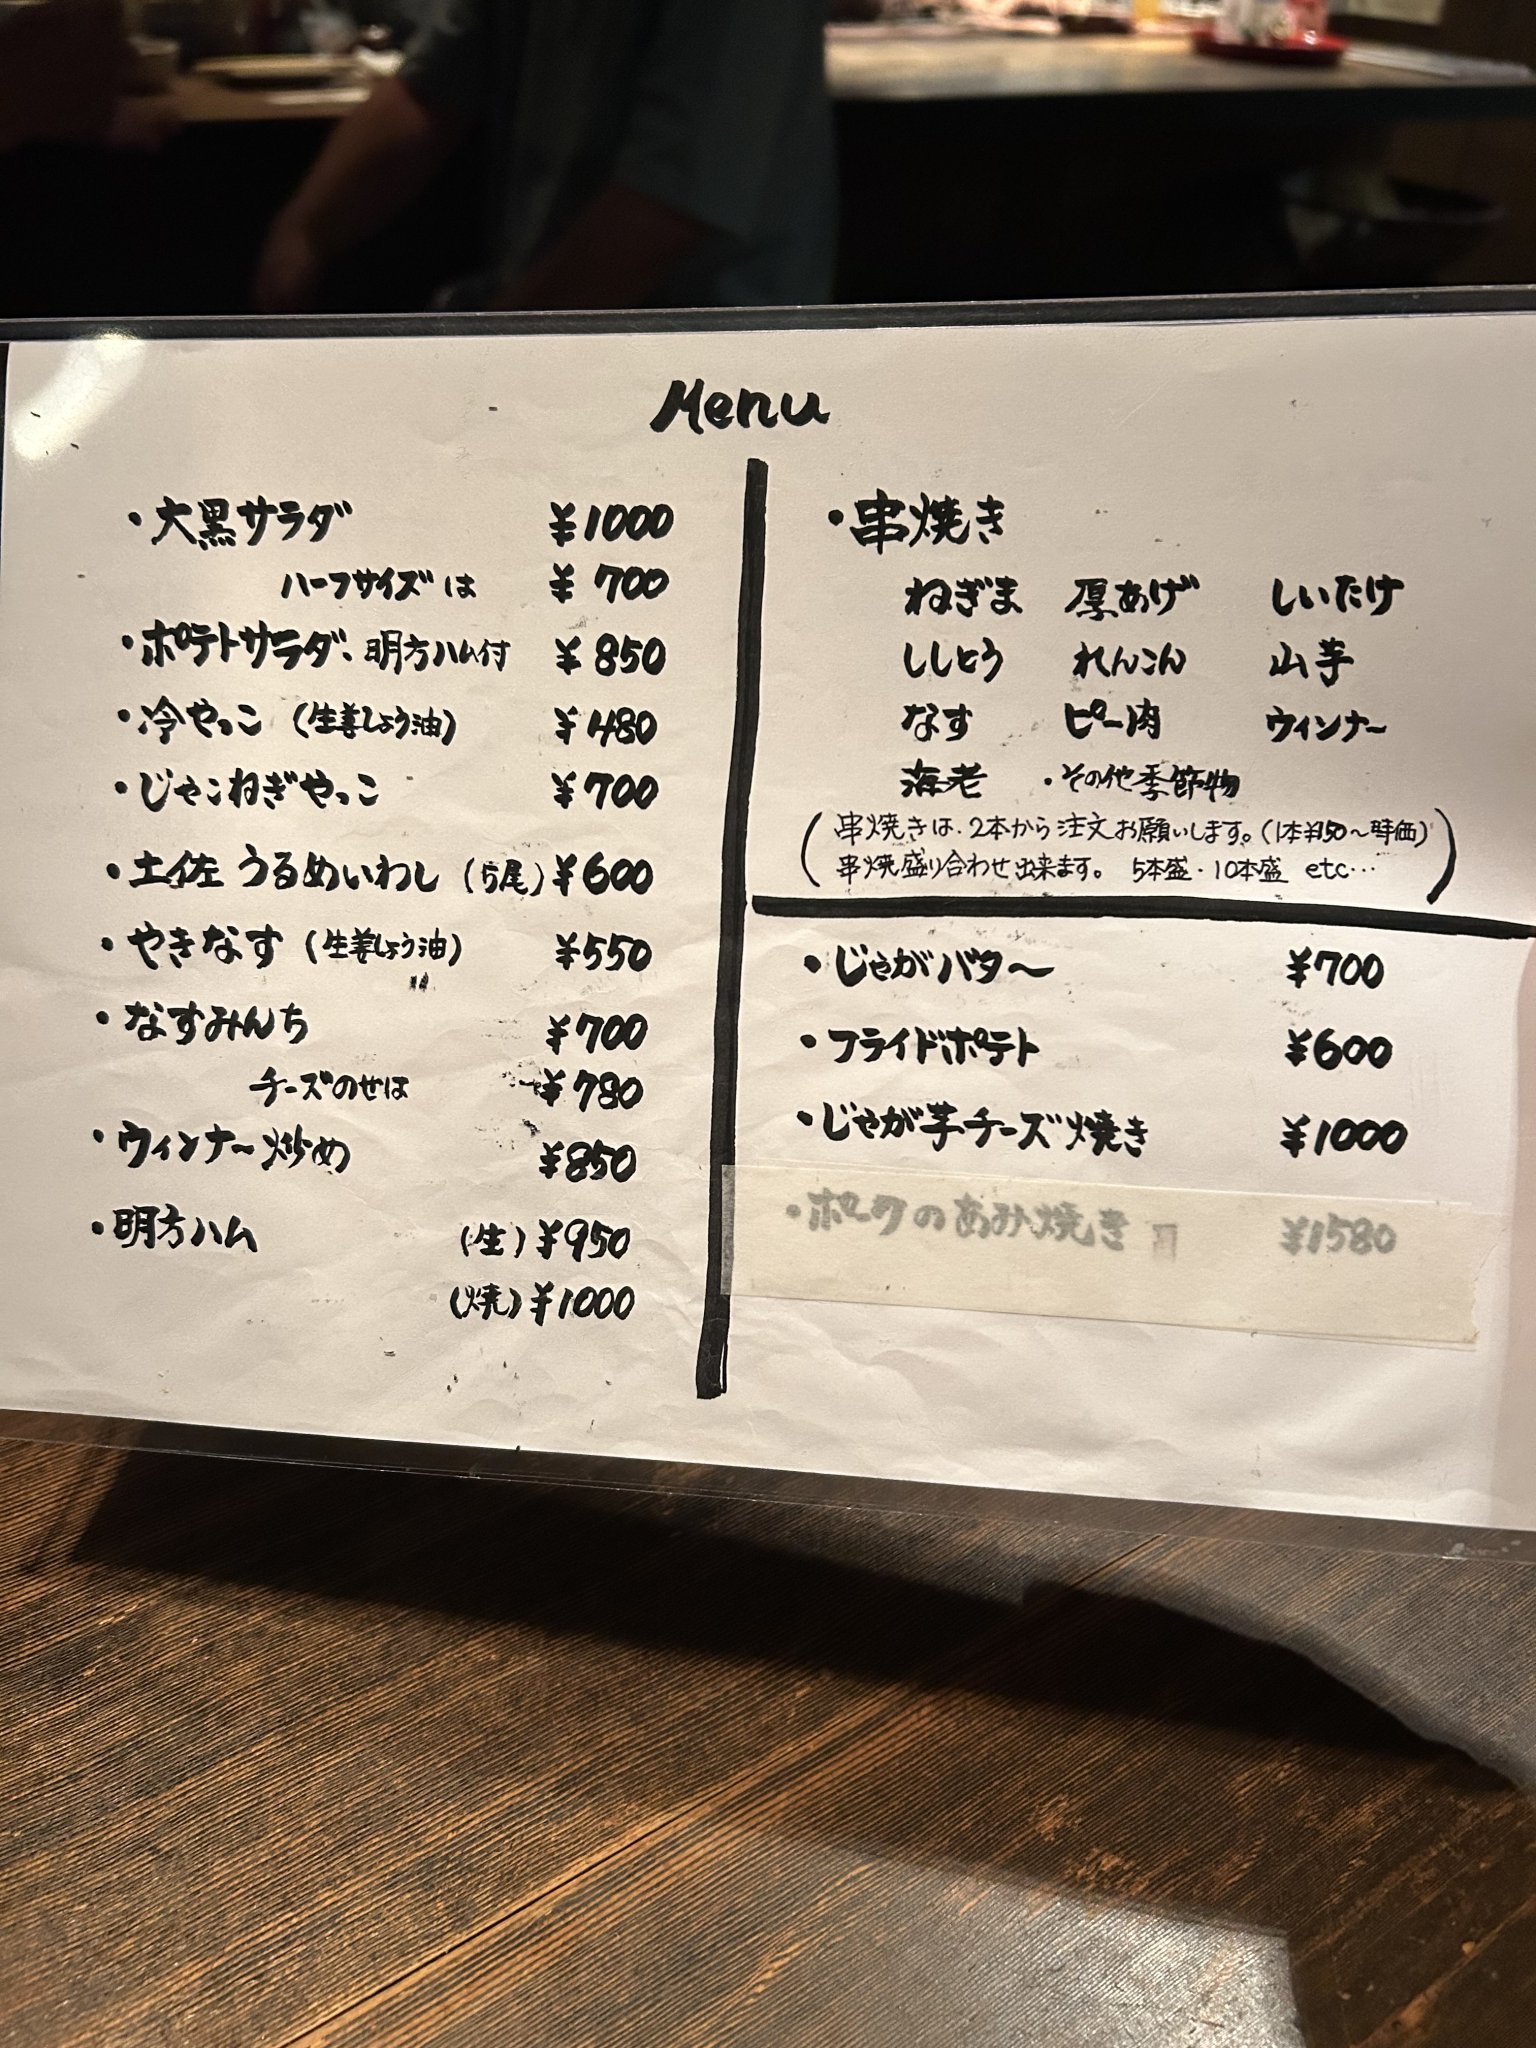 Menu
・大黒サラダ ¥1000
ハーフサイズは ¥700
・ポテトサラダ、明方ハム付 ¥850
・冷やっこ (生姜しょう油) ¥480
・じゃこねぎやっこ ¥700
・土佐うるめいわし (5尾) ¥600
・やきなす (生姜しょう油) ¥550
・なすみんち ¥700
チーズのせは ¥780
・ウィンナー炒め ¥850
・明方ハム (生) ¥950
(焼) ¥1000
・串焼き
ねぎま 厚あげ しいたけ
ししとう れんこん 山芋
なす ピー肉 ウィンナー
海老 ・その他季節物
(串焼きは、2本から注文お願いします。(1本¥150〜時価)
串焼盛り合わせ出来ます。 5本盛・10本盛 etc…)
・じゃがバター ¥700
・フライドポテト ¥600
・じゃが芋チーズ焼き ¥1000
・ポークのあみ焼き ¥1580